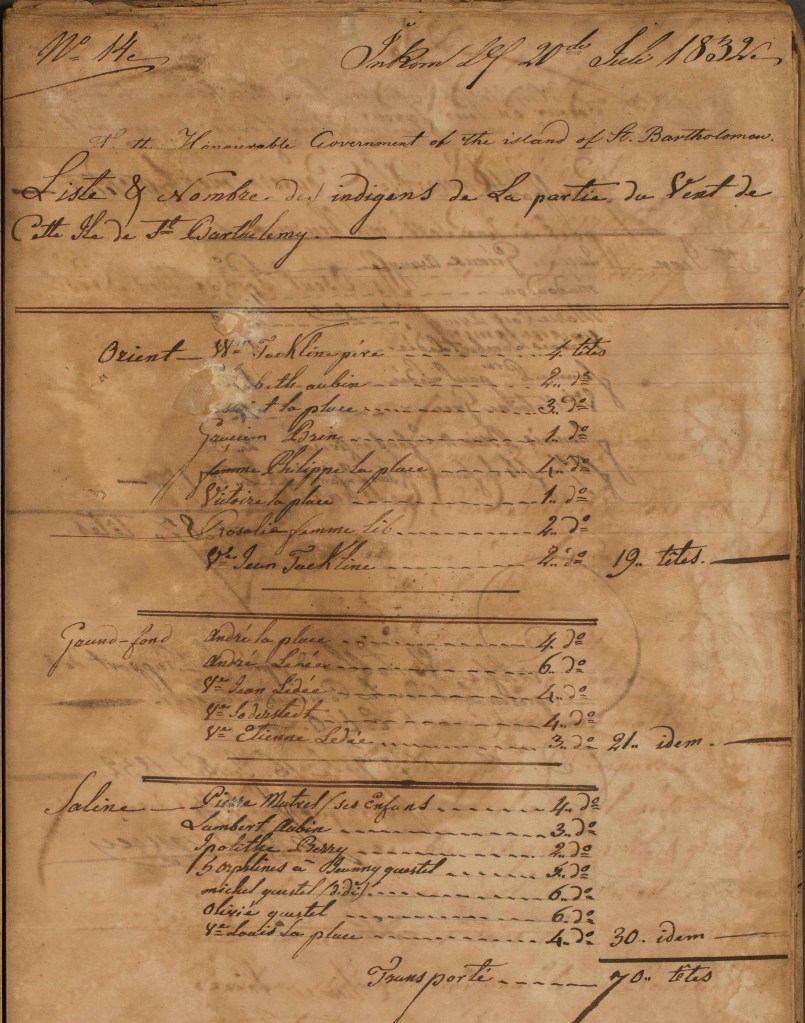 No 14.
Inkom d. 20de Juli 1832.
To the Honourable Government of the island of St. Bartholomew.
Liste & Nombre des indigens de La partie du Vent de
Cette Ile de St Barthelemy.
Orient — Ve Jackline père 4. têtes
beth aubin 2. do
la place 3. do
Brin 1. do
femme Philippe la place 4. do
Victoire la place 1. do
Rosalie femme lib. 2. do
Ve Jean Jackline 2. do 19. têtes.
Grand-fond André la place 4. do
André Lédée 6. do
Ve Jean Lédée 4. do
Ve Soderstedt 4. do
Ve Etienne Lédée 3. do 21. idem.
Saline — Pierre Matrel (ses Enfans 4. do
Lambert Aubin 3. do
Ipolithe Berry 2. do
5 orphelines à questel 5. do
michel questel 6. do
Olivié questel 6. do
Ve Louis La place 4. do 30. idem
Transporté 70. têtes